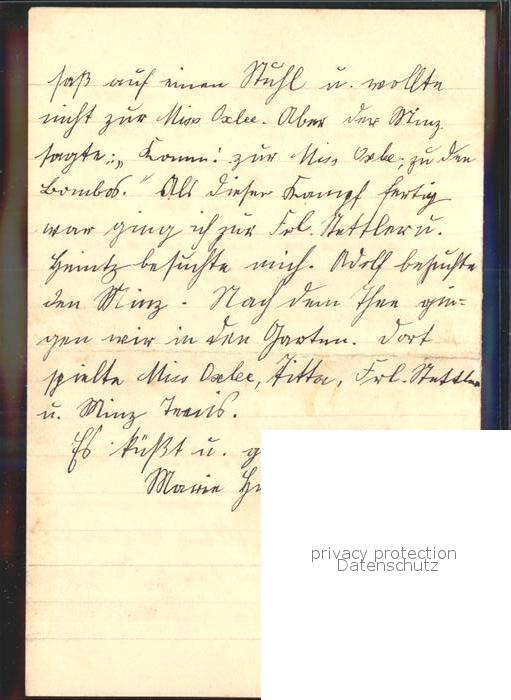 saß auf einen Stuhl u. wollte
nicht zur Miss Oxlee. Aber der Minz
sagte: „Komm! zur Miss Oxle, zu den
Bombos." Als dieser Kampf fertig
war ging ich zur Frl. Stettler u.
Heintz besuchte mich. Adolf besuchte
den Minz. Nach dem Thee gin-
gen wir in den Garten. Dort
spielte Miss Oxlee, Titta, Frl. Stettler
u. Minz Tennis.
Es küßt u. g
Marie
privacy protection
Datenschutz